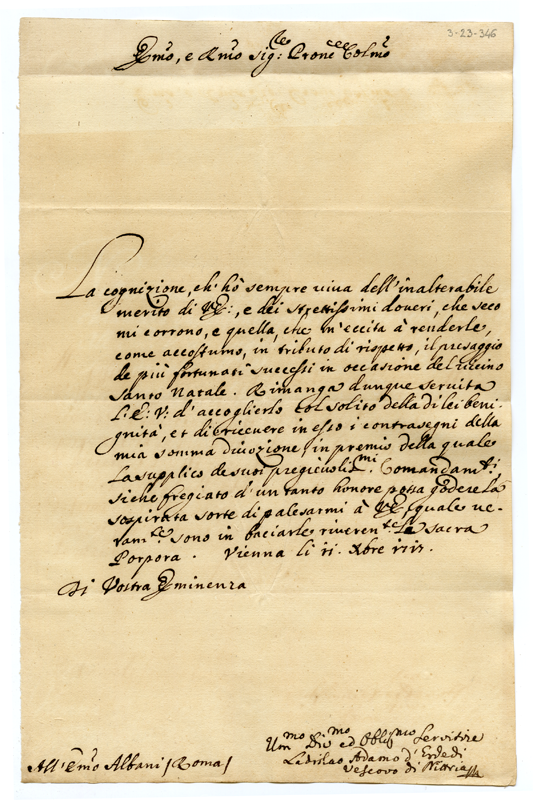 3-23-346
Em̃o, e Rmo Sig:re Prone Colmo
La cognizione, ch'hò sempre viva dell'inalterabile
merito di VE:, e dei strettissimi doueri, che seco
mi corrono, e quella, che m'eccita à renderle,
come accostumo, in tributo di rispetto, il presaggio
de più fortunati successi in occasione del uicino
Santo Natale. Rimanga dunque seruita
L'E: V: d'accoglierlo col solito della di lei beni-
gnità, et di riceuere in esso i contrasegni della
mia somma diuozione, in premio della quale
La supplico de suoi pregieuolis.mi Comandam.ti,
siche fregiato d'un tanto honore possa godere la
sospirata sorte di palesarmi à VE, quale ue-
ram.te sono in baciarle riueren.te la sacra
Porpora. Vienna li 11. Xbre 1717.
Di Vostra Eminenza
Um.mo Div.mo ed Obblig.mo Servitore
Ladislao Adamo d'Erdedi
Vescovo di Nittria
All'Em̃o Albani (Roma)